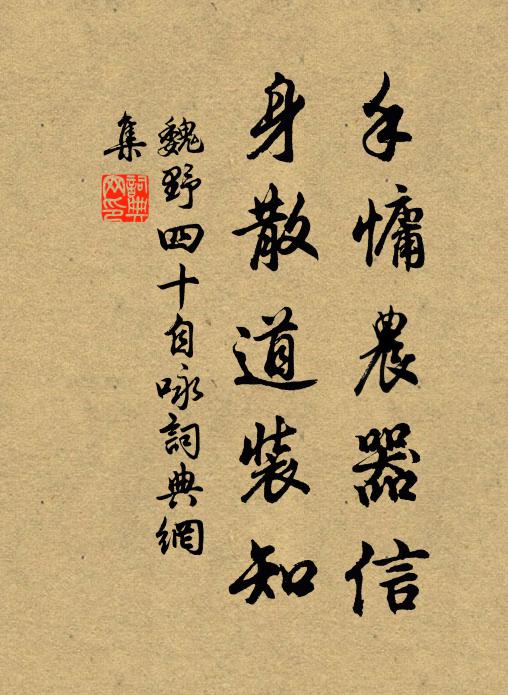 手慵農器信
身散道裝知
魏野四十自詠詞典網
集
詞典網印